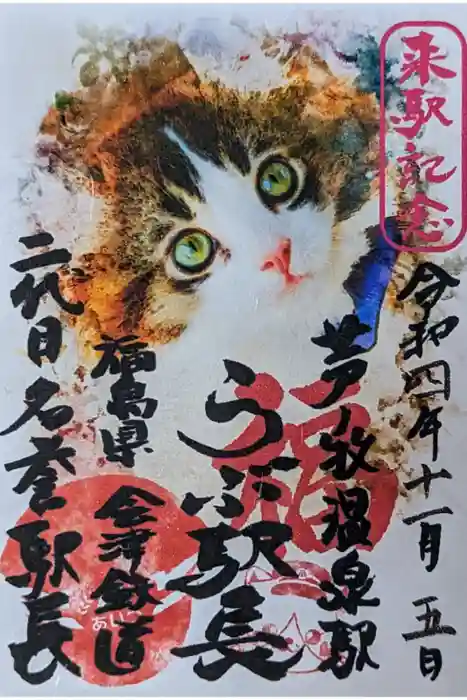 来駅記念
令和四年十一月五日
芦ノ牧温泉駅
うぶ駅長
福島県
会津鉄道
二代目名誉駅長